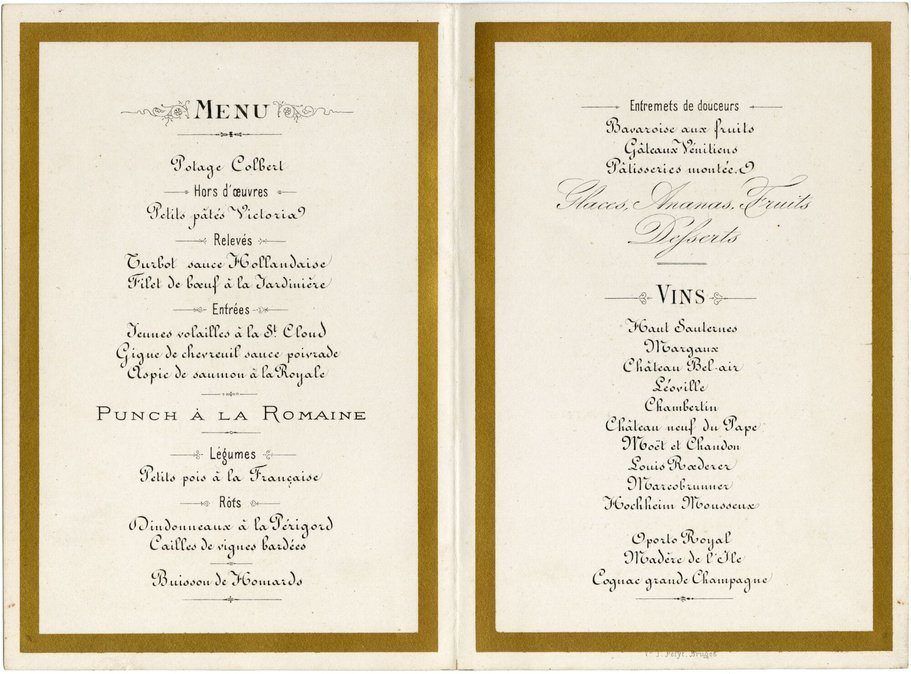 MENU
Potage Colbert
Hors d'œuvres
Petits pâtés Victoria
Relevés
Turbot sauce Hollandaise
Filet de bœuf à la Jardinière
Entrées
Jeunes volailles à la St Cloud
Gigue de chevreuil sauce poivrade
Aspic de saumon à la Royale
PUNCH À LA ROMAINE
Légumes
Petits pois à la Française
Rôts
Dindonneaux à la Périgord
Cailles de vignes bardées
Buisson de Homards
Entremets de douceurs
Bavaroise aux fruits
Gâteaux Vénitiens
Pâtisseries montées
Glaces, Ananas, Fruits
Desserts
VINS
Haut Sauternes
Margaux
Château Bel-air
Léoville
Chambertin
Château neuf du Pape
Moët et Chandon
Louis Rœderer
Marcobrunner
Hochheim Mousseux
Oporto Royal
Madère de l'Ile
Cognac grande Champagne
Bruges